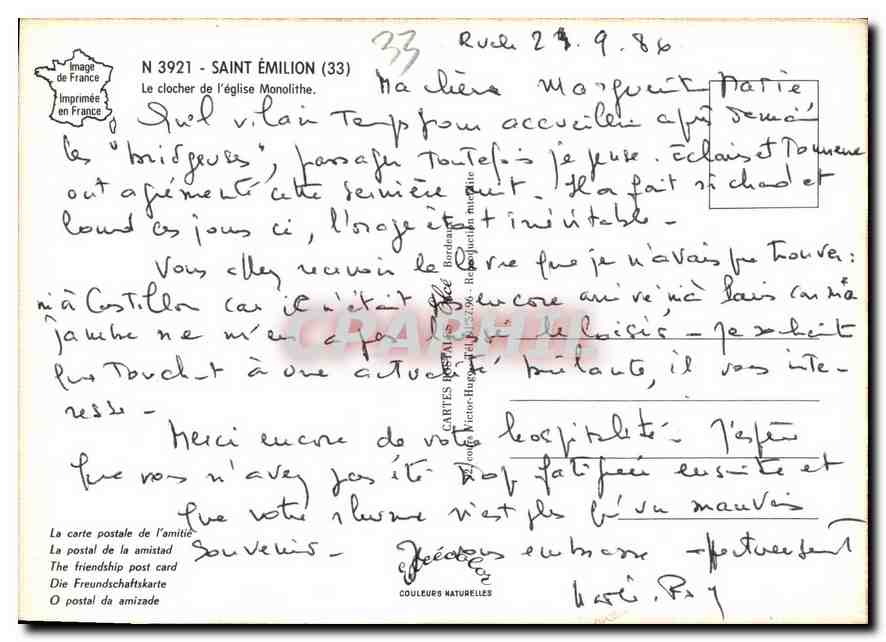 33 Ruch 21.9.86
Image de France
Imprimée en France
N 3921 - SAINT ÉMILION (33)
Le clocher de l'église Monolithe.
Ma chère Marguerite Marie
Quel vilain temps pour accueillir après demain
les "bridgeuses", passager toutefois je pense. Éclairs et Tonnerre
ont agrémenté cette dernière nuit. Il a fait si chaud et
lourd ces jours ci, l'orage était inévitable -
Vous allez recevoir le livre que je n'avais pu trouver :
ni à Castillon car il n'était pas encore arrivé ni à car ma
jambe ne m'en a pas laissé le loisir - je souhaite
que touchant à une actualité brûlante, il vous inté-
resse -
Merci encore de votre hospitalité - J'espère
que vous n'avez pas été trop fatiguée ensuite et
que votre rhume n'est plus qu'un mauvais
souvenir - Je vous embrasse affectueusement
Marie
CARTES POSTALES Bordeaux
cours Victor-Hugo - Tél. - Reproduction interdite
CPAPHIL
La carte postale de l'amitié
La postal de la amistad
The friendship post card
Die Freundschaftskarte
O postal da amizade
COULEURS NATURELLES